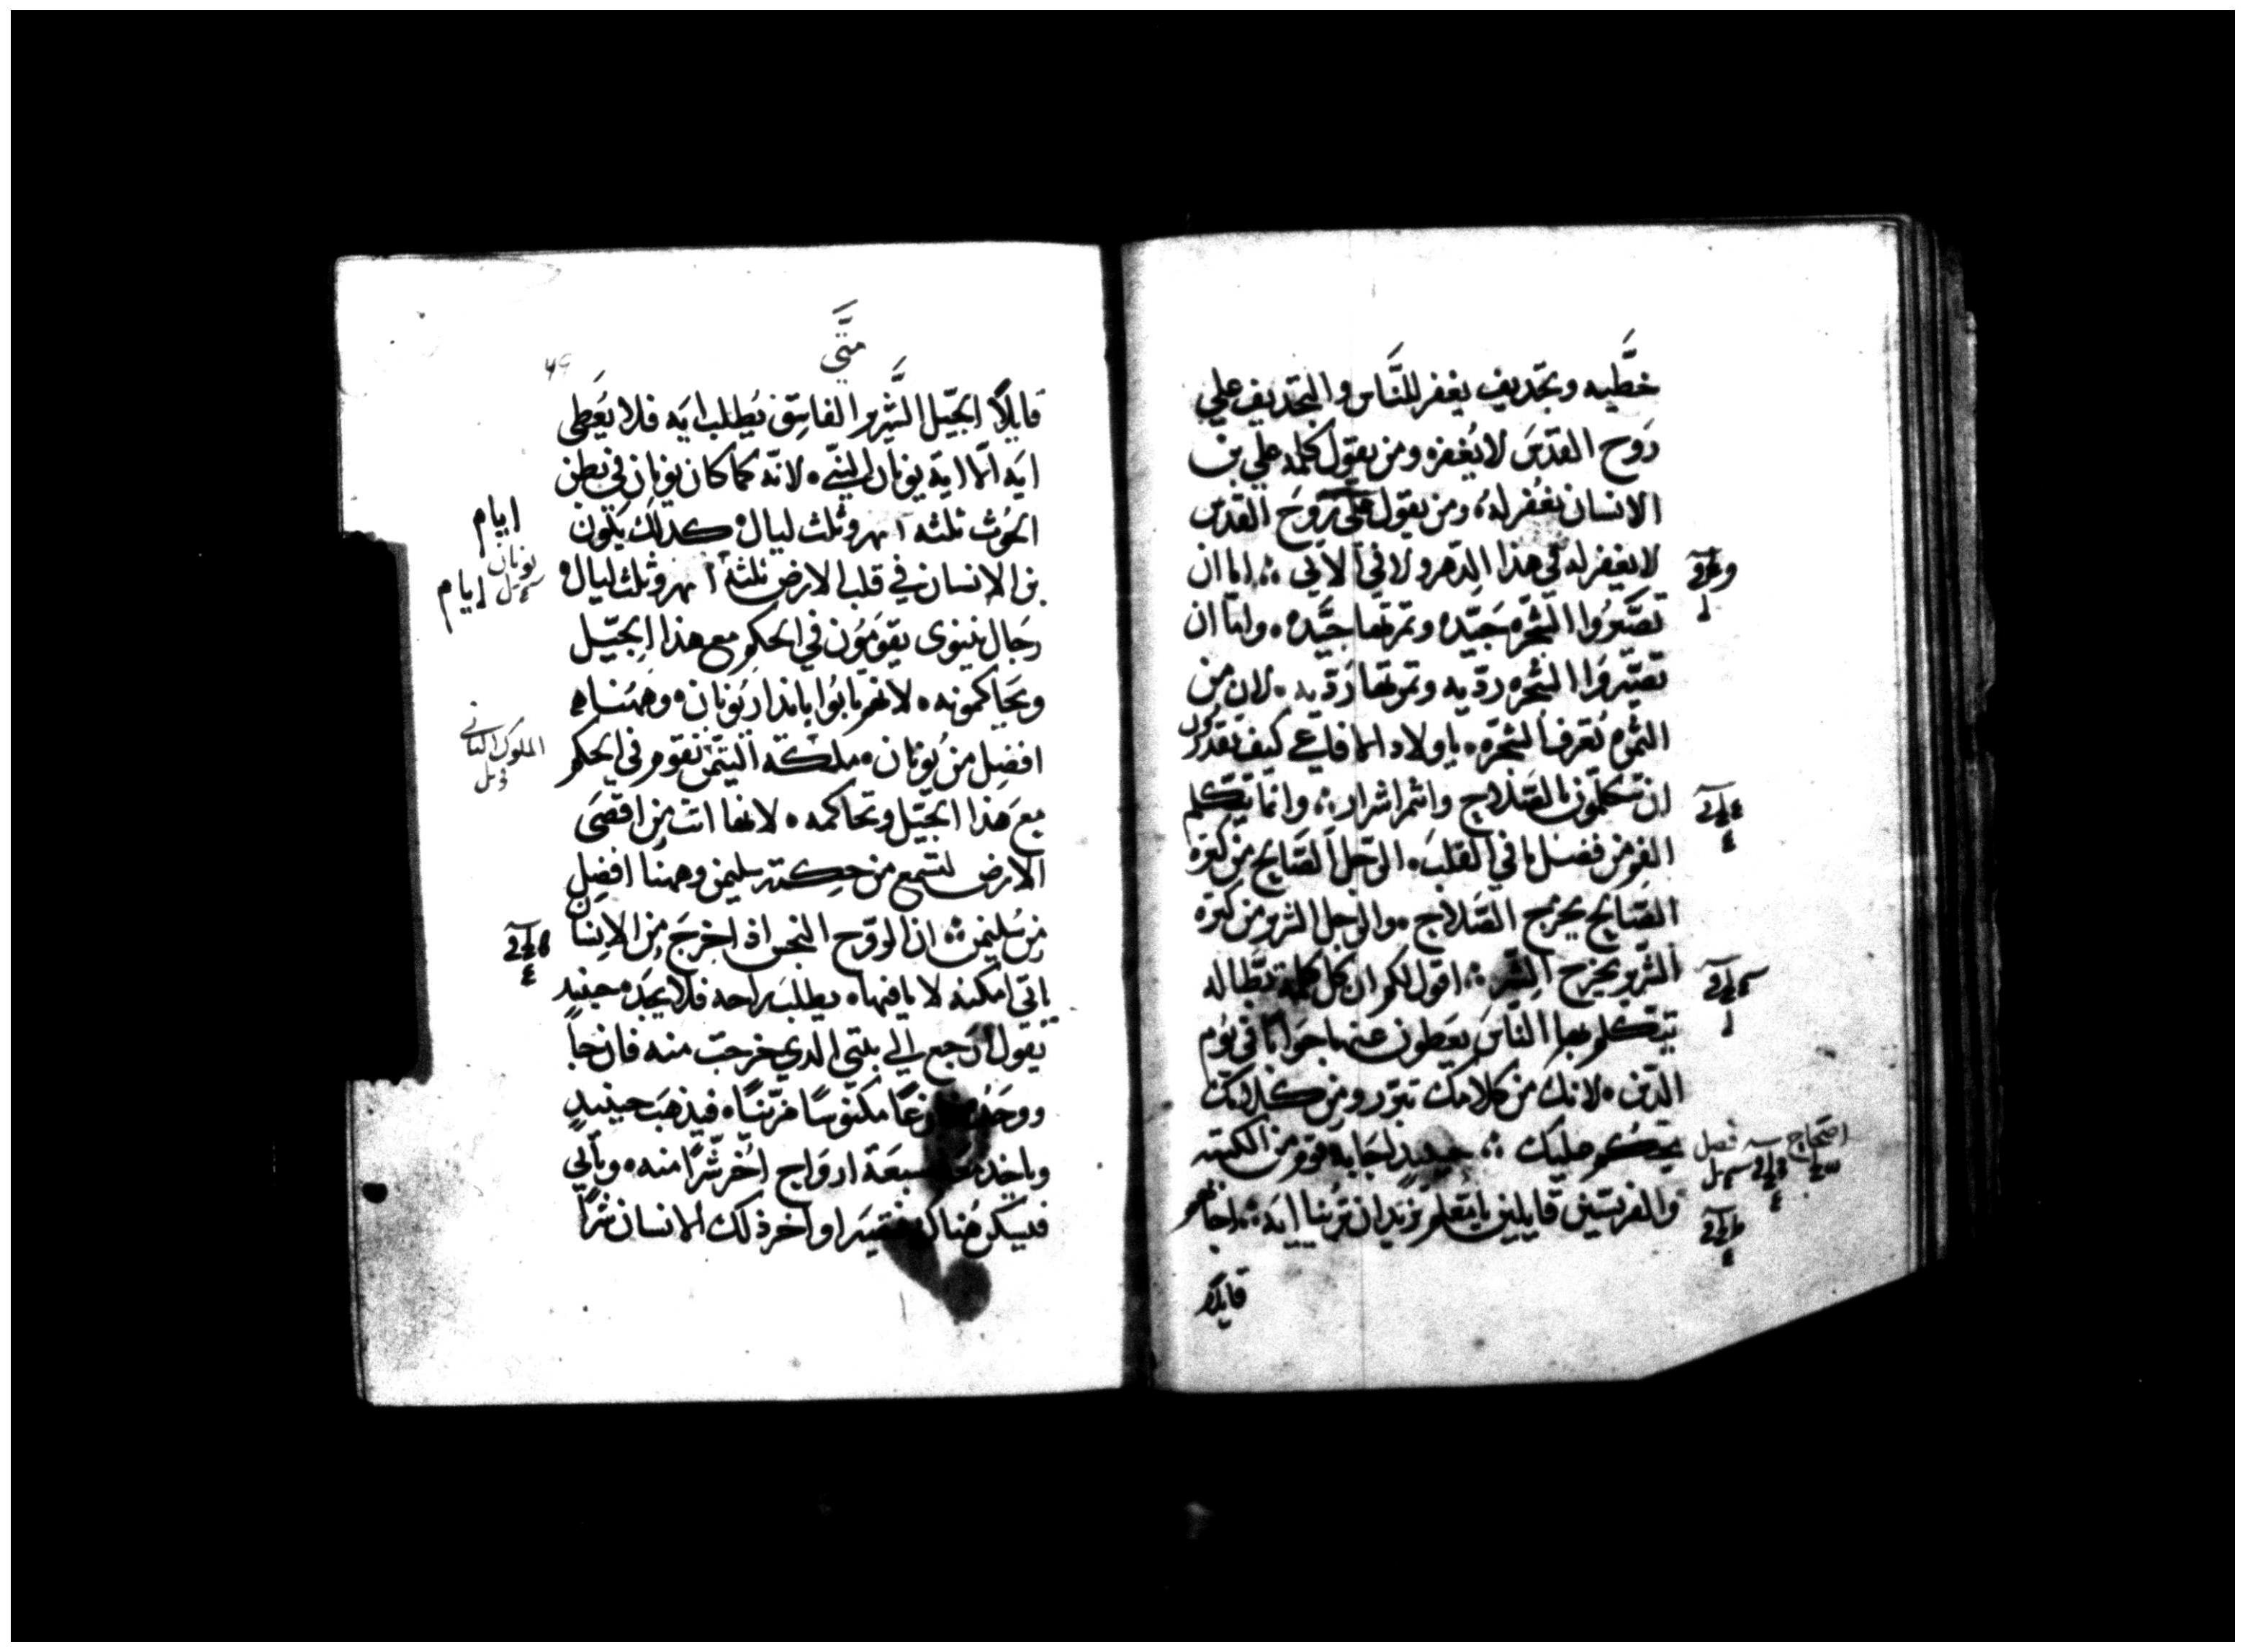 خطيه وتجديف يغفر للناس والتجديف علي
روح القدس لا يغفر ومن يقول كلمه علي بن
الانسان يغفر له ومن يقول علي روح القدس
لا يغفر له في هذا الدهر ولا في الاتي اما ان
تصيروا الشجره جيده وثمرتها جيده واما ان
تصيروا الشجره رديه وثمرتها رديه لان من
الثمره تعرف الشجره ياولاد الافاعي كيف تقدرون
ان تتكلمون بالصلاح وانتم اشرار وانما يتكلم
الفم من فضل ما في القلب الرجل الصالح من كنزه
الصالح يخرج الصلاح والرجل الشرير من كنزه
الشرير يخرج الشر اقول لكم ان كل كلمة بطاله
يتكلم بها الناس يعطون عنها جوابا في يوم
الدين لانك من كلامك تبرر ومن كلامك
يحكم عليك حينيد اجابه قوم من الكتبه
والفريسين قايلين يامعلم نريد ان ترينا ايه اجابهم
قايلا
اصحاح
فصل
متى
قايلا الجيل الشرير الفاسق يطلب ايه فلا يعطى
ايه الا اية يونان النبي لانه كما كان يونان في بطن
الحوت ثلثه انهر وثلث ليال كدلك يكون
بن الانسان في قلب الارض ثلثه انهر وثلث ليال
رجال نينوى يقومون في الحكم مع هذا الجيل
ويحاكمونه لانهم تابوا بانذار يونان وههنا
افضل من يونان ملكة التيمن تقوم في الحكم
مع هذا الجيل وتحاكمه لانها اتت من اقصى
الارض لتسمع من حكمة سليمن وههنا افضل
من سليمن ان الروح النجس اذا خرج من الانسان
ياتي امكنه لا ما فيها يطلب راحه فلا يجد حينيد
يقول ارجع الي بيتي الدي خرجت منه فان جا
ووجده فارغا مكنوسا مزينا فيذهب حينيد
وياخد معه سبعة ارواح اخر شرا منه وياتي
فيسكن هناك فتصير اواخر ذلك الانسان شرا
ايام
يونان
ايام
الملوك الثاني